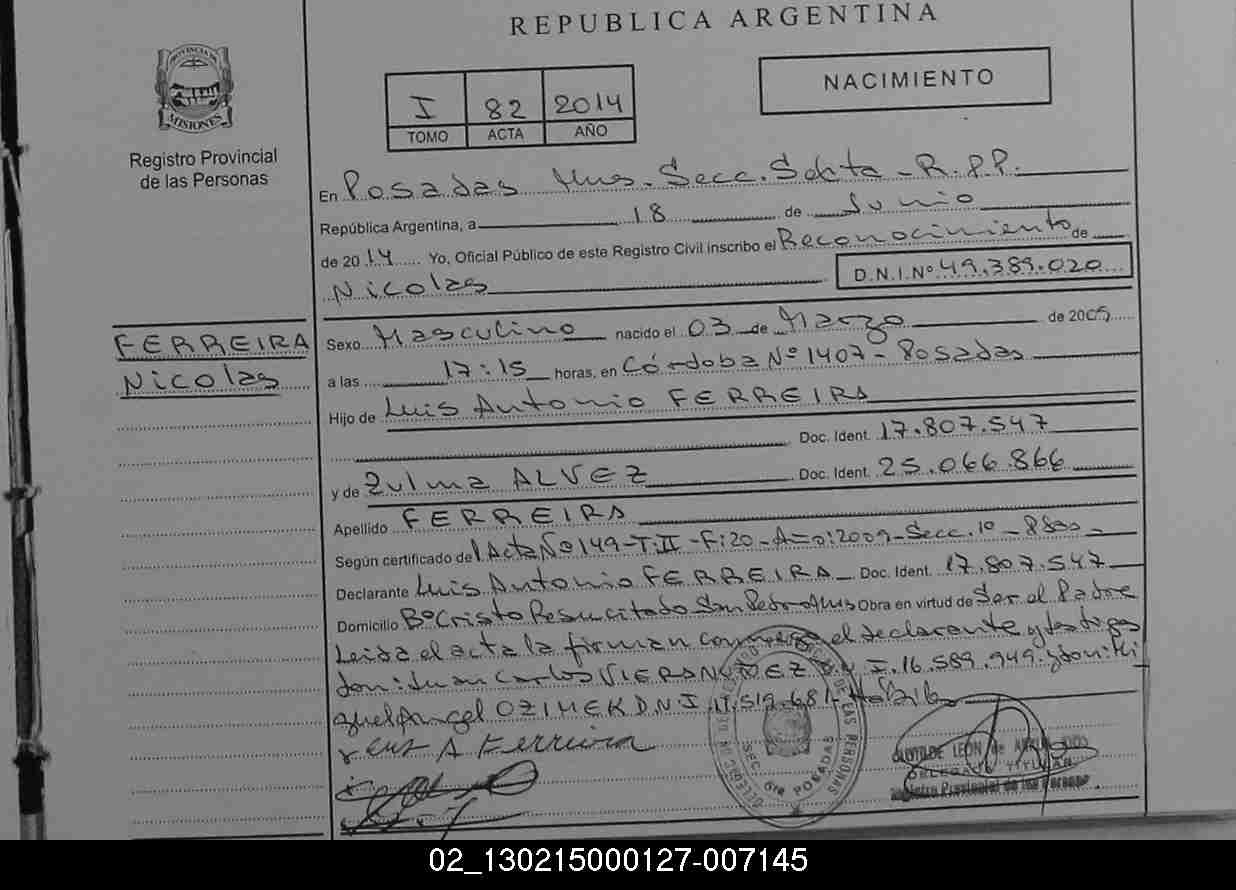 REPUBLICA ARGENTINA
PROVINCIA DE
MISIONES
Registro Provincial
de las Personas
I 82 2014
TOMO ACTA AÑO
NACIMIENTO
En Posadas Mns. Secc. Sexta - R.P.P.
República Argentina, a 18 de Junio
de 2014 Yo, Oficial Público de este Registro Civil inscribo el Reconocimiento de
Nicolas D.N.I. Nº 49.389.020
FERREIRA
Nicolas
Sexo Masculino nacido el 03 de Marzo de 2009
a las 17:15 horas, en Córdoba Nº 1407 - Posadas
Hijo de Luis Antonio FERREIRA
Doc. Ident. 17.807.547
y de Zulma ALVEZ Doc. Ident. 25.066.866
Apellido FERREIRA
Según certificado de Acta Nº 149 - T: II - F: 20 - Año: 2009 - Secc. 1º - Pdas -
Declarante Luis Antonio FERREIRA Doc. Ident. 17.807.547
Domicilio Bº Cristo Resucitado San Pedro Mns Obra en virtud de Ser el Padre
Leida el acta la firman conmigo el declarante y testigos
don: Juan Carlos VIERA NUÑEZ D.N.I. 16.589.949 y don: Mi
guel Angel OZIMEK D.N.I. 17.519.681
Luis A Ferreira
SEC. 6ta POSADAS
DELEGADO TITULAR
Registro Provincial de las Personas
02_130215000127-007145